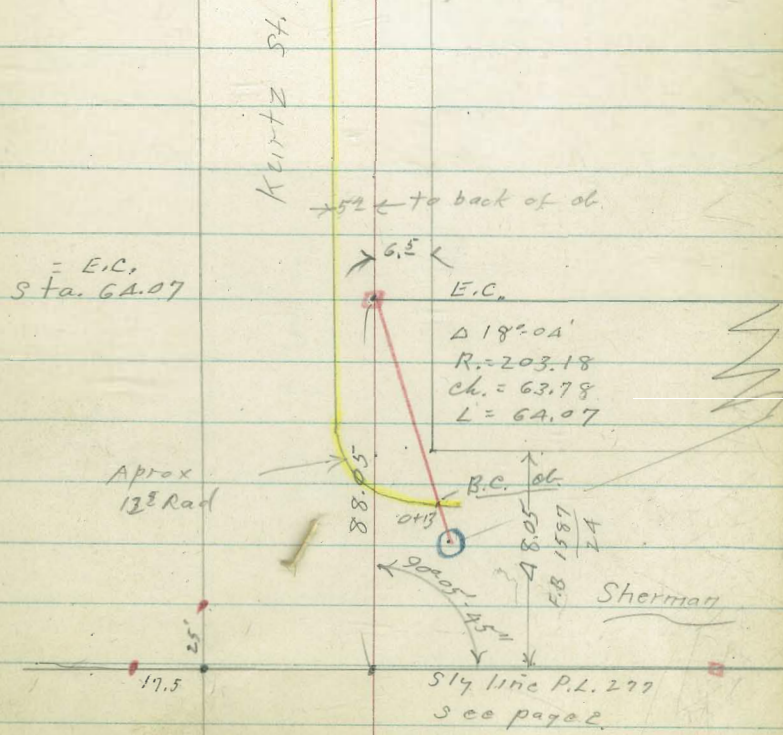 Kurtz St.
5 9 to back of cb.
6.5
= E.C.
Sta. 64.07
E.C.
Δ 18°-04'
R. = 203.18
ch. = 63.78
L = 64.07
Aprox
Rad
88.05
B.C.
cb.
0+13
48.05
F.B 1587
24
90°05'-45"
Sherman
25'
17.5
Sly line P.L. 277
see page 2